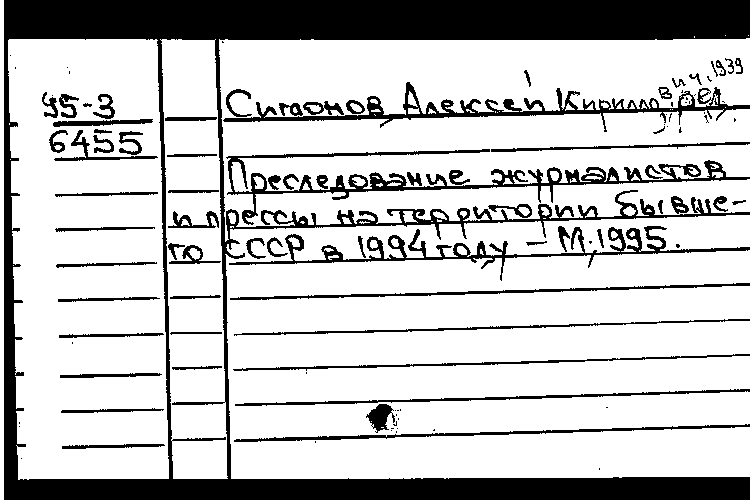 95-3
6455
Симонов, Алексей Кириллович, 1939, ред.
Преследование журналистов
и прессы на территории бывше-
го СССР в 1994 году. - М., 1995.